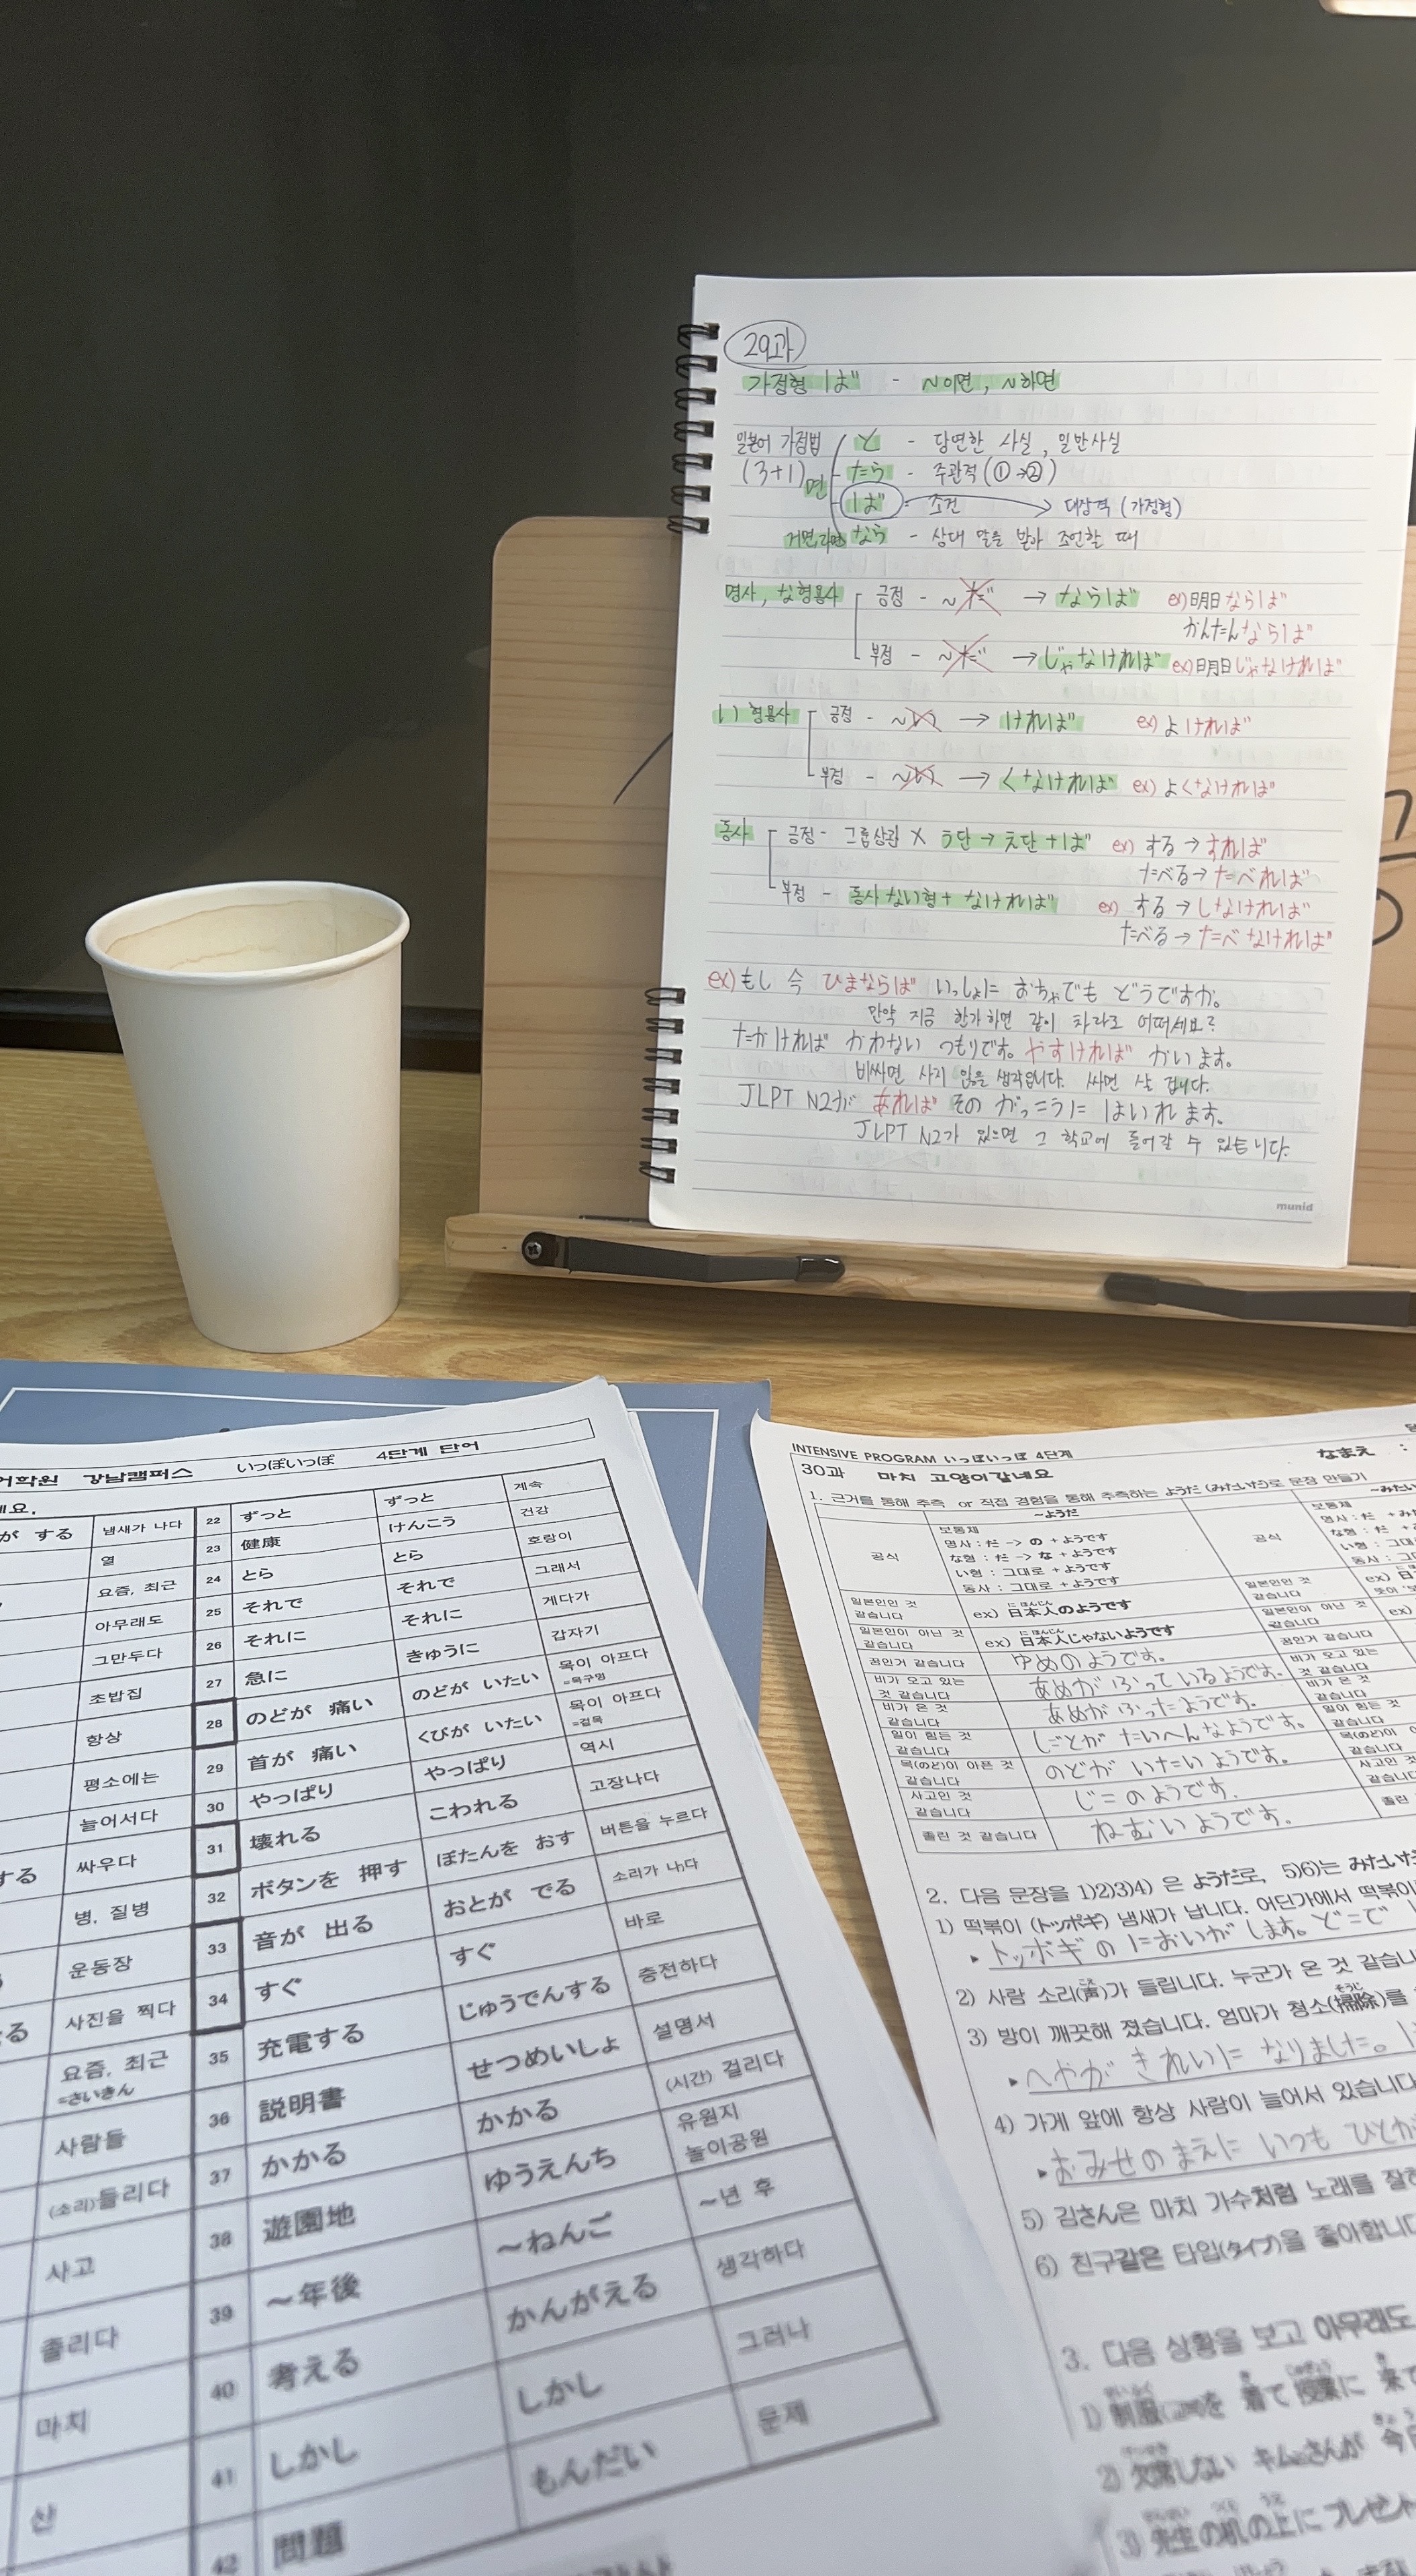 29과
가정형 ば - ~이면, ~하면
일본어 가정법 と - 당연한 사실, 일반사실
(3+1) 면 たら - 주관적 (①→②)
ば - 조건 → 대상격 (가정형)
거면, 라면 なら - 상대 말을 받아 조언할 때
명사, な형용사 긍정 - ~だ → ならば ex) 明日ならば
かんたんならば
부정 - ~だ → じゃなければ ex) 明日じゃなければ
い형용사 긍정 - ~い → ければ ex) よければ
부정 - ~い → くなければ ex) よくなければ
동사 긍정 - 그룹상관 X う단 → え단 + ば ex) する → すれば
たべる → たべれば
부정 - 동사 ない형 + なければ ex) する → しなければ
たべる → たべなければ
ex) もし 今 ひまならば いっしょに おちゃでも どうですか。
만약 지금 한가하면 같이 차라도 어떠세요?
たかければ かわない つもりです。 やすければ かいます。
비싸면 사지 않을 생각입니다. 싸면 살 겁니다.
JLPT N2が あれば その がっこうに はいれます。
JLPT N2가 있으면 그 학교에 들어갈 수 있습니다.
munid
어학원 강남캠퍼스 いっぽいっぽ 4단계 단어
세요.
が する 냄새가 나다 22 ずっと ずっと 계속
열 23 健康 けんこう 건강
요즘, 최근 24 とら とら 호랑이
아무래도 25 それで それで 그래서
그만두다 26 それに それに 게다가
초밥집 27 急に きゅうに 갑자기
항상 28 のどが 痛い のどが いたい 목이 아프다 =목구멍
평소에는 29 首が 痛い くびが いたい 목이 아프다 =겉목
늘어서다 30 やっぱり やっぱり 역시
する 싸우다 31 壊れる こわれる 고장나다
병, 질병 32 ボタンを 押す ぼたんを おす 버튼을 누르다
운동장 33 音が 出る おとが でる 소리가 나다
る 사진을 찍다 34 すぐ すぐ 바로
요즘, 최근 =さいきん 35 充電する じゅうでんする 충전하다
사람들 36 説明書 せつめいしょ 설명서
(소리)들리다 37 かかる かかる (시간) 걸리다
사고 38 遊園地 ゆうえんち 유원지 놀이공원
졸리다 39 ~年後 ~ねんご ~년 후
마치 40 考える かんがえる 생각하다
산 41 しかし しかし 그러나
42 問題 もんだい 문제
INTENSIVE PROGRAM いっぽいっぽ 4단계
なまえ :
30과 마치 고양이같네요
1. 근거를 통해 추측 or 직접 경험을 통해 추측하는 ようだ (みたいだ)로 문장 만들기
~ようだ ~みたい
공식 보통체 공식 보통체
명사 : だ -> の + ようです 명사 : だ + み
な형 : だ -> な + ようです な형 : だ +
い형 : 그대로 + ようです い형 : 그대로
동사 : 그대로 + ようです 동사 : 그대
일본인인 것 같습니다 ex) 日本人のようです 일본인인 것 같습니다 ex) 日
일본인이 아닌 것 같습니다 ex) 日本人じゃないようです 일본인이 아닌 것 같습니다 ex)
꿈인거 같습니다 ゆめのようです。 꿈인거 같습니다
비가 오고 있는 것 같습니다 あめが ふって いるようです。 비가 오고 있는 것 같습니다
비가 온 것 같습니다 あめが ふったようです。 비가 온 것 같습니다
일이 힘든 것 같습니다 しごとが たいへんなようです。 일이 힘든 것 같습니다
목(のど)이 아픈 것 같습니다 のどが いたいようです。 목(のど)이 아 같습니다
사고인 것 같습니다 じこのようです。 사고인 것 같습니다
졸린 것 같습니다 ねむいようです。 졸린
2. 다음 문장을 1)2)3)4) 은 ようだ로, 5)6)는 みたいだ
1) 떡볶이 (トッポギ) 냄새가 납니다. 어딘가에서 떡볶이
トッポギの においが します。 どこで
2) 사람 소리(声)가 들립니다. 누군가 온 것 같습니
3) 방이 깨끗해 졌습니다. 엄마가 청소(掃除)를
へやが きれいに なりました。
4) 가게 앞에 항상 사람이 늘어서 있습니다
おみせの まえに いつも ひとが
5) 김さん은 마치 가수처럼 노래를 잘
6) 친구같은 타입(タイプ)을 좋아합니다
3. 다음 상황을 보고 아무래도
1) 制服を 着て 授業に 来て
2) 欠席しない キムさんが 今日
3) 先生の机の上に プレゼント